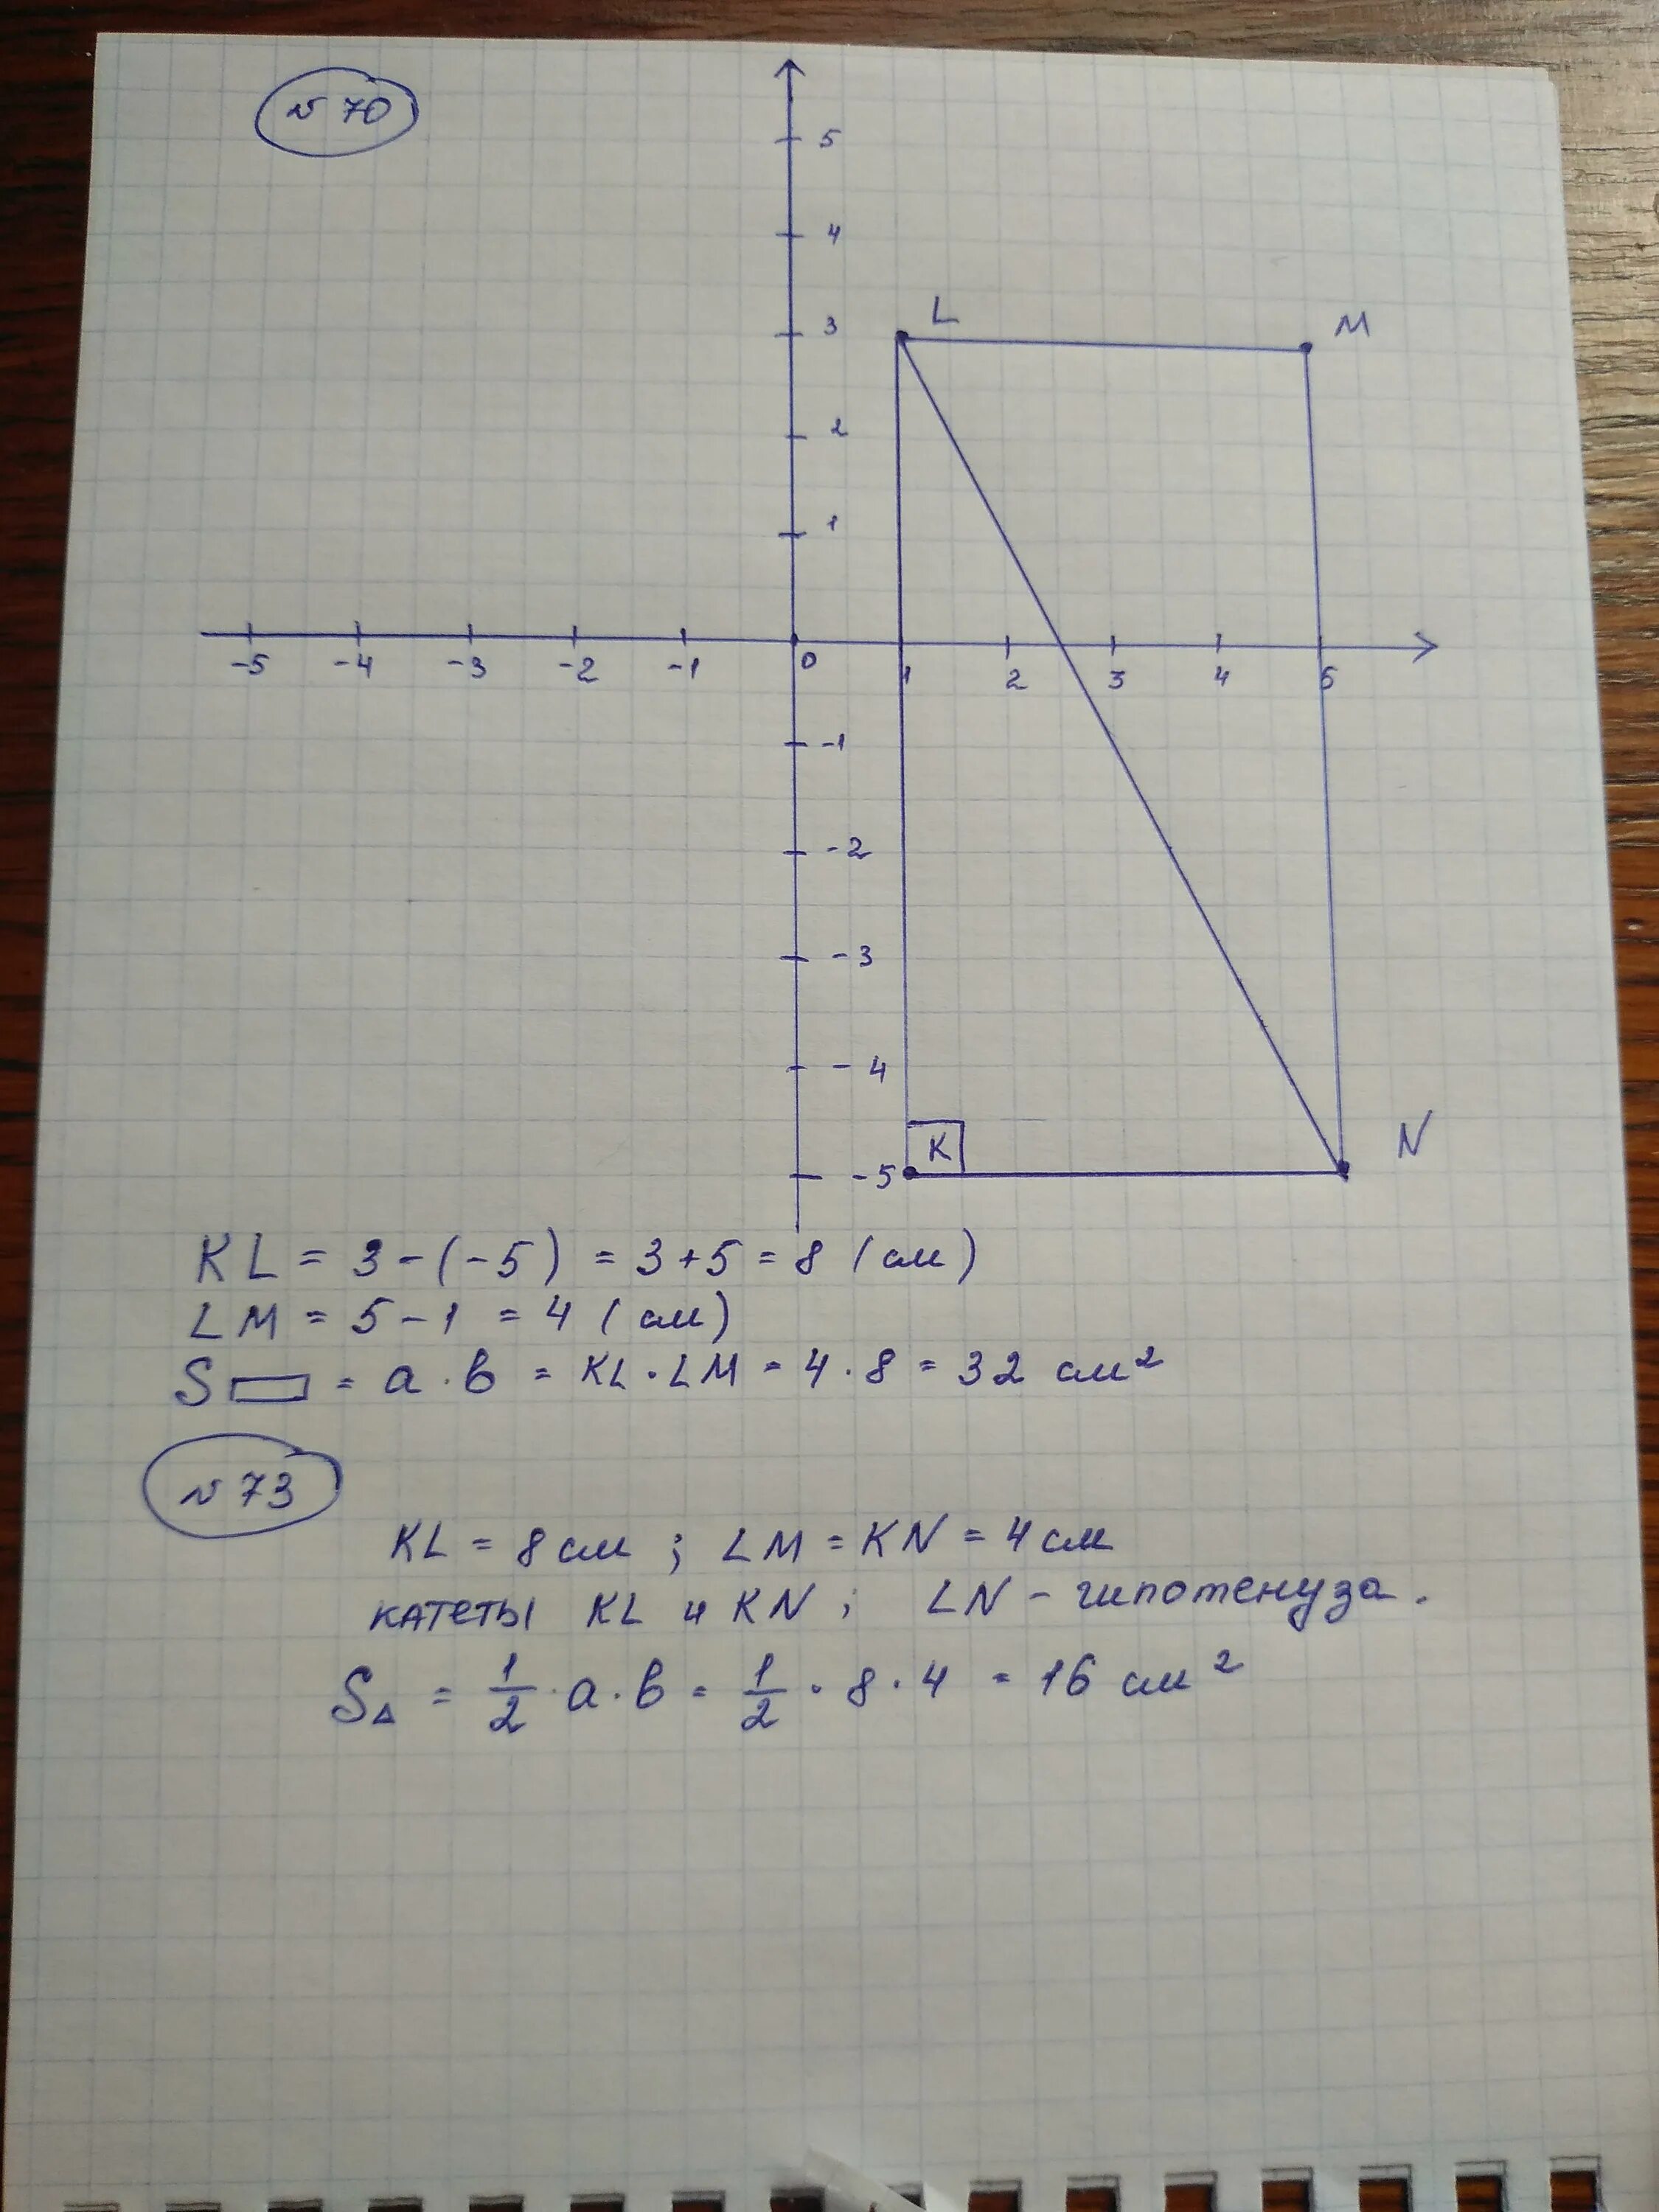 № 70
5
4
3
L
M
2
1
-5 -4 -3 -2 -1 0 1 2 3 4 5
-1
-2
-3
-4
K
N
-5
KL = 3 - (-5) = 3 + 5 = 8 (см)
LM = 5 - 1 = 4 (см)
S▭ = a · b = KL · LM = 4 · 8 = 32 см²
№ 73
KL = 8 см ; LM = KN = 4 см
катеты KL и KN ; LN - гипотенуза.
S△ = 1/2 · a · b = 1/2 · 8 · 4 = 16 см²